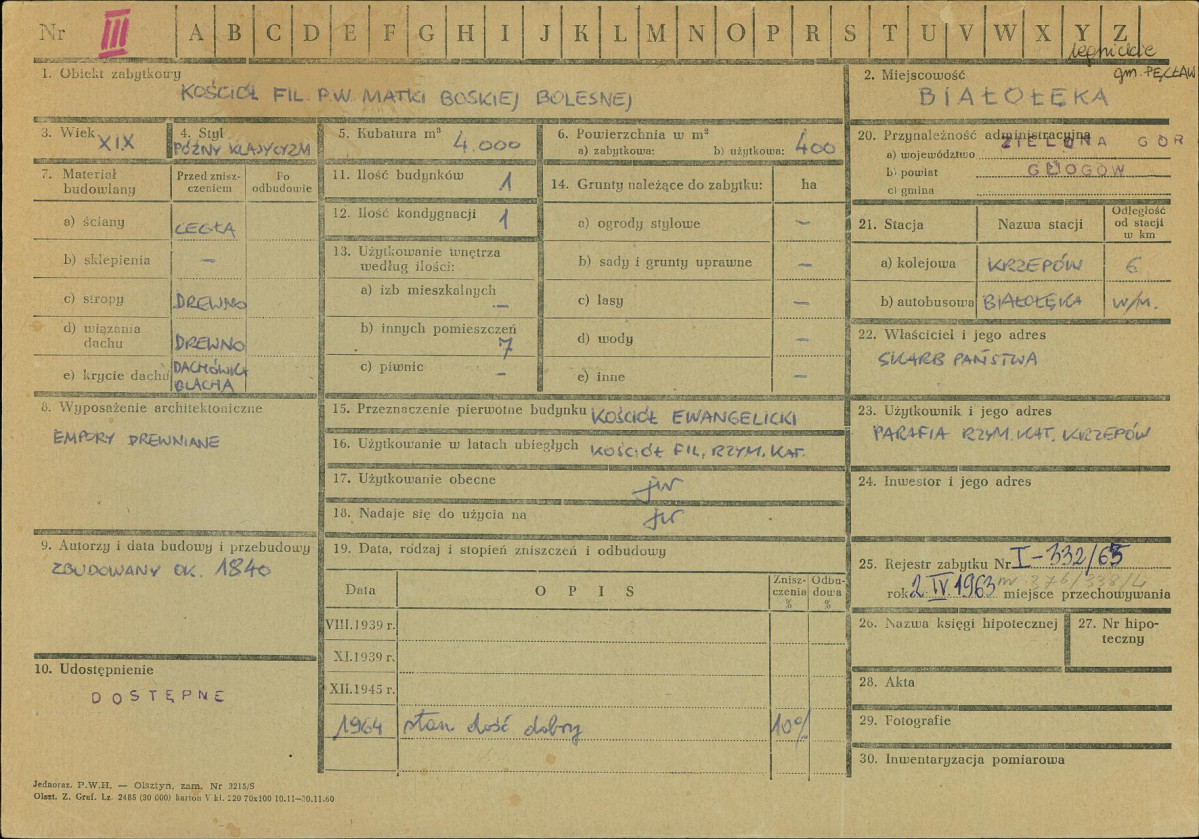 Nr III A B C D E F G H I J K L M N O P R S T U V W X Y Z
legnickie
gm. PĘCŁAW
1. Obiekt zabytkowy
KOŚCIÓŁ FIL. P.W. MATKI BOSKIEJ BOLESNEJ
2. Miejscowość
BIAŁOŁĘKA
3. Wiek XIX
4. Styl
PÓŹNY KLASYCYZM
5. Kubatura m³ 4.000
6. Powierzchnia w m²
a) zabytkowa: b) użytkowa: 400
20. Przynależność administracyjna
a) województwo ZIELONA GÓR
b) powiat GŁOGÓW
c) gmina
7. Materiał budowlany
Przed zniszczeniem
Po odbudowie
a) ściany CEGŁA
b) sklepienia –
c) stropy DREWNO
d) wiązania dachu DREWNO
e) krycie dachu DACHÓWKA BLACHA
11. Ilość budynków 1
12. Ilość kondygnacji 1
13. Użytkowanie wnętrza według ilości:
a) izb mieszkalnych –
b) innych pomieszczeń 7
c) piwnic –
14. Grunty należące do zabytku: ha
a) ogrody stylowe –
b) sady i grunty uprawne –
c) lasy –
d) wody –
e) inne –
21. Stacja
Nazwa stacji
Odległość od stacji w km
a) kolejowa KRZEPÓW 6
b) autobusowa BIAŁOŁĘKA W/M.
22. Właściciel i jego adres
SKARB PAŃSTWA
8. Wyposażenie architektoniczne
EMPORY DREWNIANE
15. Przeznaczenie pierwotne budynku KOŚCIÓŁ EWANGELICKI
16. Użytkowanie w latach ubiegłych KOŚCIÓŁ FIL. RZYM. KAT.
17. Użytkowanie obecne jw
18. Nadaje się do użycia na jw
23. Użytkownik i jego adres
PARAFIA RZYM. KAT. KRZEPÓW
24. Inwestor i jego adres
9. Autorzy i data budowy i przebudowy
ZBUDOWANY OK. 1840
10. Udostępnienie
DOSTĘPNE
19. Data, rodzaj i stopień zniszczeń i odbudowy
Data OPIS Zniszczenia % Odbudowa %
VIII.1939 r.
XI.1939 r.
XII.1945 r.
1964 stan dość dobry 10%
25. Rejestr zabytku Nr I-332/63
rok 2 IV. 1963 nr 376/338/4 miejsce przechowywania
26. Nazwa księgi hipotecznej
27. Nr hipoteczny
28. Akta
29. Fotografie
30. Inwentaryzacja pomiarowa
Jednoraz. P.W.H. — Olsztyn, zam. Nr 3215/S
Olszt. Z. Graf. Lz. 2485 (30 000) karton V kl. 220 70x100 10.11—30.11.60